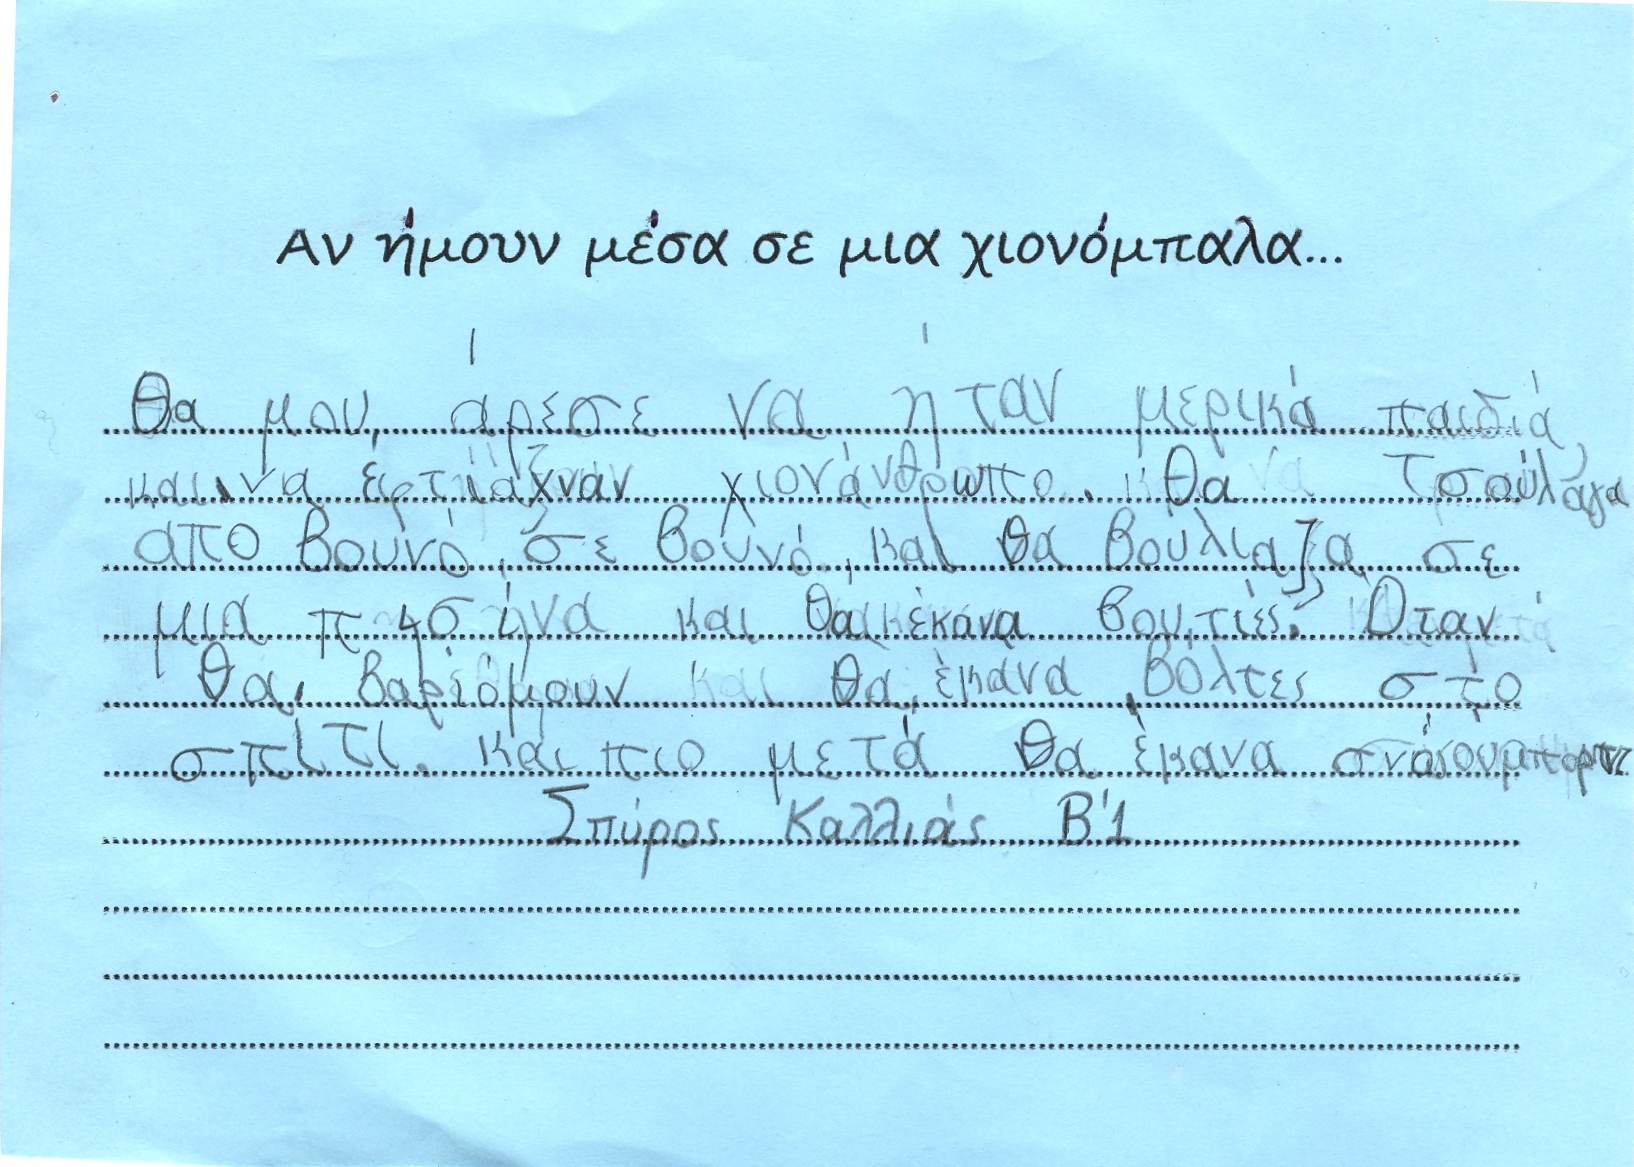 Αν ήμουν μέσα σε μια χιονόμπαλα...
Θα μου άρεσε να ήταν μερικά παιδιά
και να έφτιάχναν χιονάνθρωπο. Θα τσούλαγα
απο βουνό σε βουνό και θα βούλιαζα σε
μια πισήνα και θα έκανα βουτιές. Όταν
θα βαριόμουν θα έκανα βόλτες στο
σπίτι. και πιο μετά θα έκανα
Σπύρος Καλλιάς Β'1